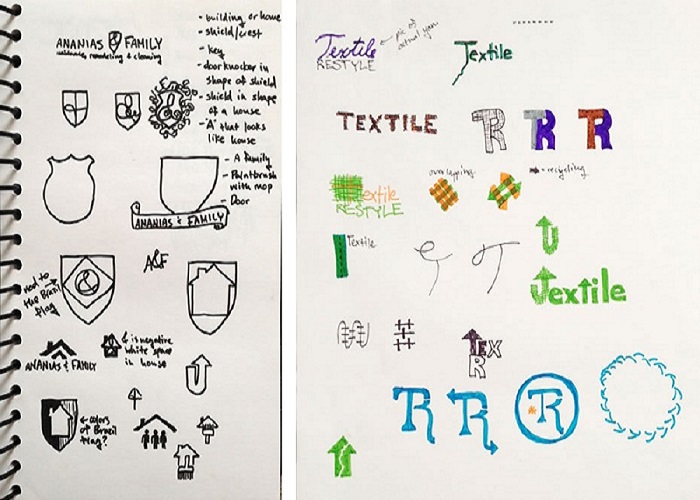 ANANIAS & FAMILY
remodeling & cleaning
- building or home
- shield/crest
- key
- doorknocker in
shape of shield
- shield in shape
of a house
- "A" that looks
like house
- A family
- Paintbrush
with mop
- Door
ANANIAS & FAMILY
A&F
nod to
the Brazil
flag
& is negative
white space
in house
ANANIAS & FAMILY
← colors
of Brazil
flag?
Textile
RESTYLE
pic of
actual yarn
Textile
TEXTILE
TR
TR
TR
Textile
RESTYLE
overlapping
recycling
Textile
Textile
TEX
R
TR
TR
TR